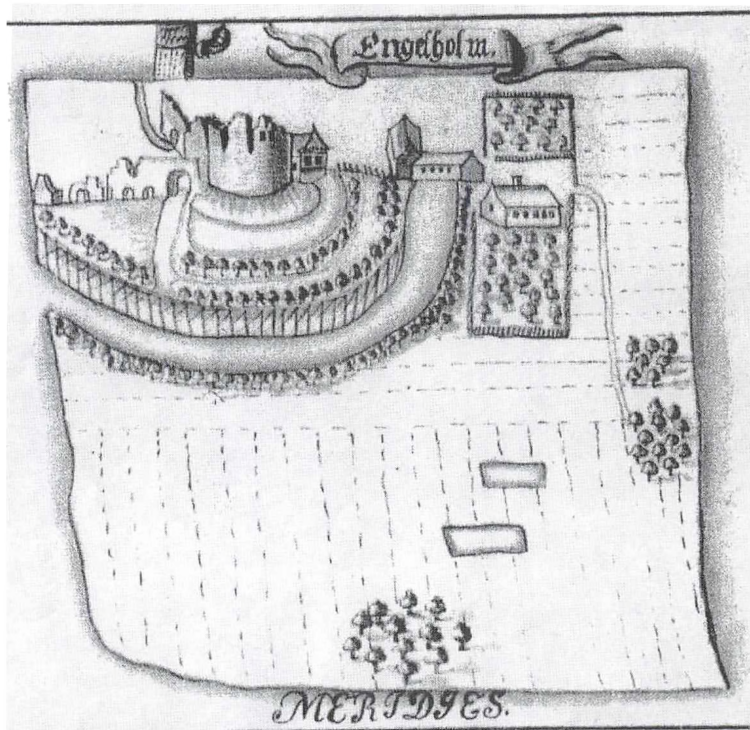 Engelholm.
MERIDIES.